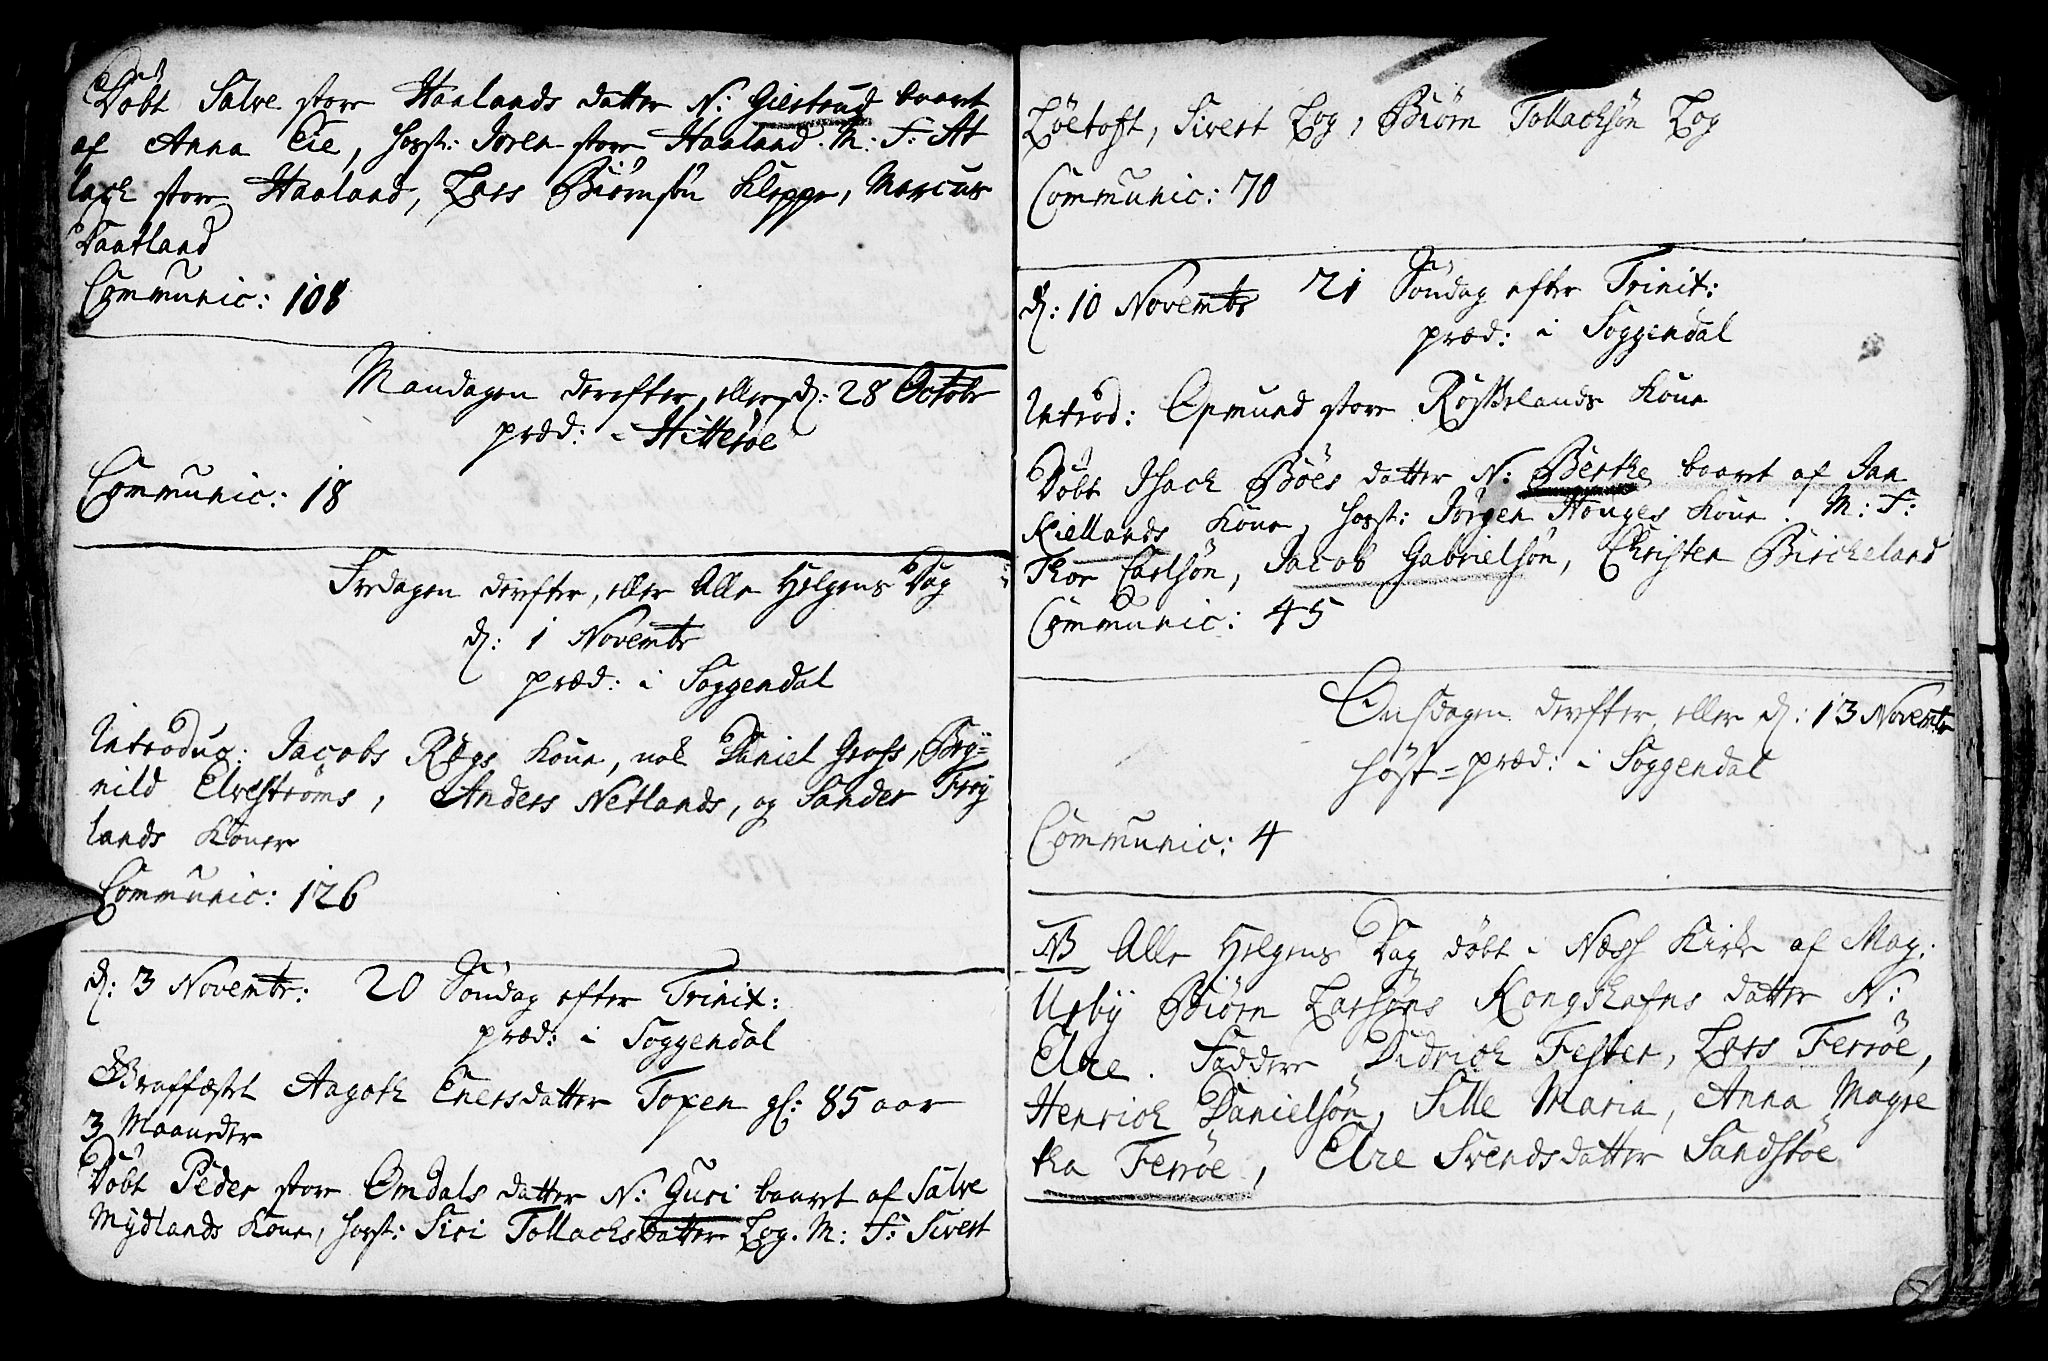 Döbt Salve store Haalands datter N: Giertrud baaret
af Anna Eie, hosst: Joren store Haaland. M: F: At
lack store Haaland, Lars Biörnsön Kleppe, Marcus
Taatland
Communic: 108
Mandagen derefter, eller d: 28 Octobr
præd: i Hitteröe
Communic: 18
Fredagen derefter, eller Alle Helgens Dag
d: 1 Novembr
præd: i Soggendal
Introduc: Jacobs Rægs Kone, nol Daniel Gross, Bry=
nild Elvestrøms, Anders Netlands, og Sander Frøy
lands Koner
Communic: 126
d: 3 Novembr: 20 Söndag efter Trinit:
præd: i Soggendal
Graffæstet Aagoth Enersdatter Topen gl: 85 aar
3 Maaneder
Döbt Peder store Omdals datter N: Guri baaret af Salve
Mydlands Kone, hosst: Siri Tollachsdatter Log. M: F: Sivert
Löetoft, Sivert Log, Biörn Tollachsön Log
Communic: 70
d: 10 Novembr 21 Söndag efter Trinit:
præd: i Soggendal
Introd: Osmund store Röstelands Kone
Döbt Isach Böes datter N: Berthe baaret af Jan
Kiellands Kone, hosst: Jörgen Houges Kone. M: F:
Thor Carlsön, Jacob Gabrielsön, Christen Birckeland
Communic: 45
Onsdagen derefter eller d: 13 Novembr
höst=præd: i Soggendal
Communic: 4
NB Alle Helgens Dag döbt i Næss Kirke af Mag:
Urby Biörn Larsöns Kongshafns datter N:
Elne. Faddere Didrich Fester, Lars Ferröe,
Henrich Danielsön, Sille Maria, Anna Magre
tha Ferröe, Elne Svendsdatter Sandstöe